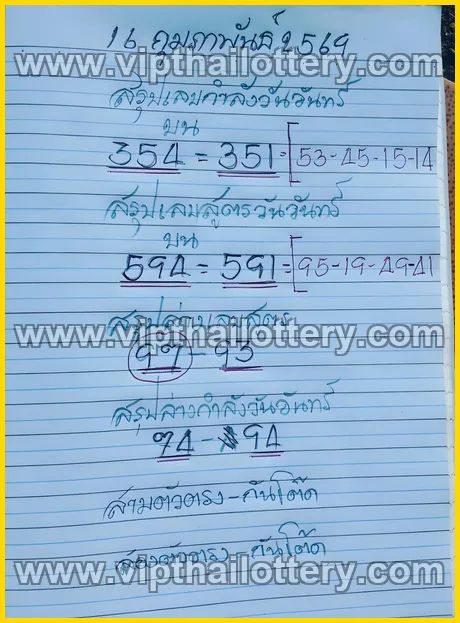 16 กุมภาพันธ์ 2569
www.vipthailottery.com
สรุปเลขกำลังวันจันทร์
บน
354 = 351 = [53-45-15-14
สรุปเลขสูตรวันจันทร์
บน
594 = 591 = [95-19-49-41
สรุปล่างเลขสูตร
www.vipthailottery.com
97 - 93
สรุปล่างกำลังวันจันทร์
74 - 94
สามตัวตรง-กันโต๊ด
สองตัวตรง-กันโต๊ด
www.vipthailottery.com